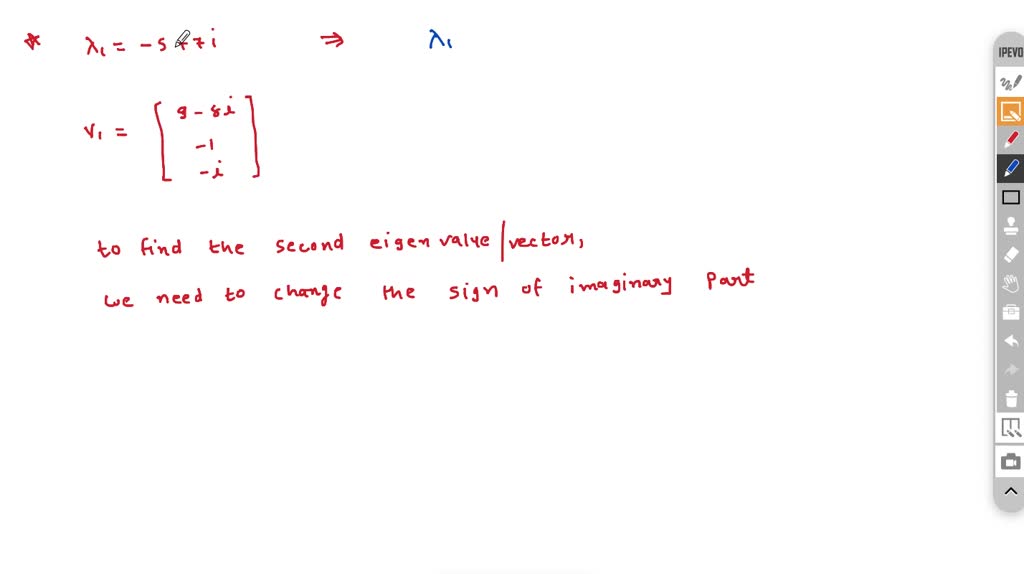 * λ₁ = -5+7i ⇒ λ₁
v₁ = [ 9 - 8i
-1
-i ]
to find the second eigen value | vector,
we need to change the sign of imaginary part
IPEVO